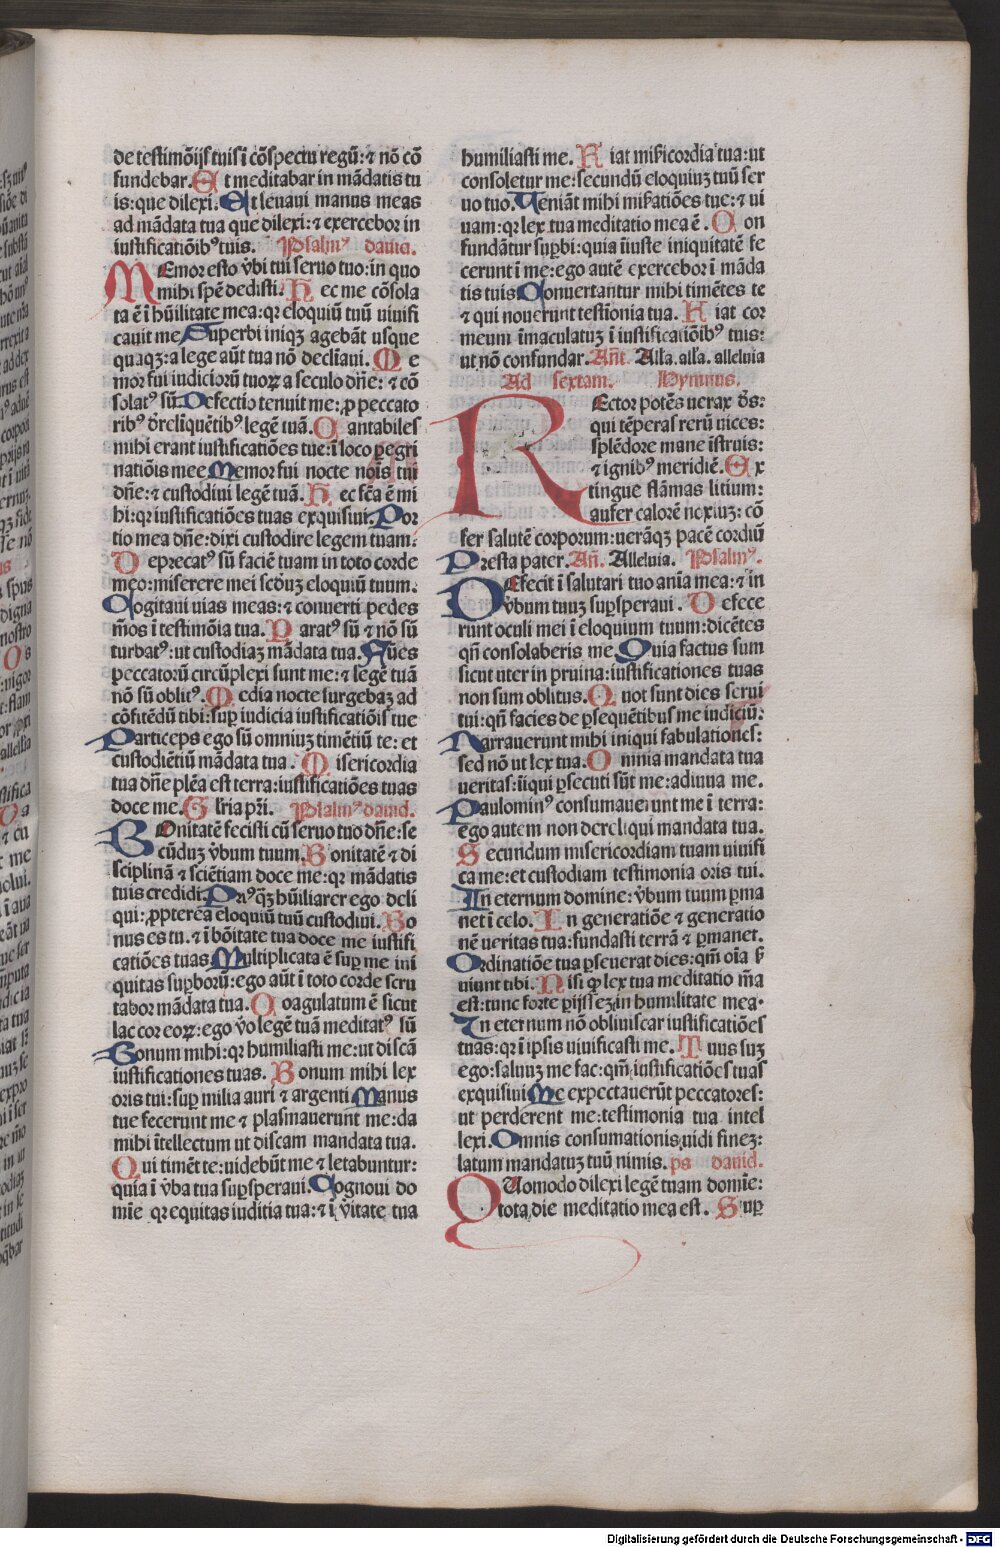 de testimōijs tuis ī cōspectu regū: ⁊ nō cō
fundebar. Et meditabar in mādatis tu
is: que dilexi. Et leuaui manus meas
ad mādata tua que dilexi: ⁊ exercebor in
iustificatiōibꝰ tuis. Psalmꝰ dauid.
MEmor esto v̄bi tui seruo tuo: in quo
mihi spē dedisti. Hec me cōsola
ta ē ī hūilitate mea: qꝛ eloquiū tuū uiuifi
cauit me Superbi iniqꝫ agebāt usque
quaqꝫ: a lege aūt tua nō declīaui. Me
mor fui iudiciorū tuoꝝ a seculo dn̄e: ⁊ cō
solatꝰ sū Defectio tenuit me: ꝓ peccato
ribꝰ d̄relīquētibꝰ legē tuā. Cantabiles
mihi erant iustificatiōes tue: ī loco pegri
natiōis mee Memor fui nocte nois tui
dn̄e: ⁊ custodiui legē tuā. Hec fc̄a ē mi
hi: qꝛ iustificatiōes tuas exquisiui. Por
tio mea dn̄e: dixi custodire legem tuam.
Deprecatꝰ sū faciē tuam in toto corde
meo: miserere mei scd̄uꝫ eloquiū tuum.
Cogitaui uias meas: ⁊ conuerti pedes
m̄os ī testimōia tua. Paratꝰ sū ⁊ nō sū
turbatꝰ: ut custodiaꝫ mādata tua. Fūes
peccatorū circūplexi sunt me: ⁊ legē tuā
nō sū oblitꝰ. Media nocte surgebaꝫ ad
cōfitēdū tibi: suꝑ iudicia iustificatiōis tue
Particeps ego sū omniuꝫ timētiū te: et
custodiētiū mādata tua. Misericordia
tua dn̄e plēa est terra: iustificatiōes tuas
doce me. Glria pr̄i. Psalmꝰ dauid.
BOnitatē fecisti cū seruo tuo dn̄e: se
cūduꝫ v̄bum tuum. Bonitatē ⁊ di
sciplinā ⁊ sciētiam doce me: qꝛ mādatis
tuis credidi Priꝰqꝫ hūiliarer ego deli
qui: ꝓpterea eloquiū tuū custodiui. Bo
nus es tu. ⁊ ī bōitate tua doce me iustifi
catiōes tuas Multiplicata ē suꝑ me ini
quitas suꝑborū: ego aūt ī toto corde scru
tabor mādata tua. Coagulatum ē sicut
lac cor eoꝝ: ego v̄o legē tuā meditatꝰ sū
Bonum mihi: qꝛ humiliasti me: ut discā
iustificationes tuas. Bonum mihi lex
oris tui: suꝑ milia auri ⁊ argenti Manus
tue fecerunt me ⁊ plasmauerunt me: da
mihi ītellectum ut discam mandata tua.
Qui timēt te: uidebūt me ⁊ letabuntur:
quia ī v̄ba tua suꝑsperaui. Cognoui do
mīe qꝛ equitas iuditia tua: ⁊ ī v̄itate tua
humiliasti me. Fiat mi̅ricordia tua: ut
consoletur me: secundū eloquiuꝫ tuū ser
uo tuo. Veniāt mihi mi̅ratiōes tue: ⁊ ui
uam: qꝛ lex tua meditatio mea ē. Con
fundātur suꝑbi: quia īiuste iniquitatē fe
cerunt ī me: ego autē exercebor ī māda
tis tuis Conuertantur mihi timētes te
⁊ qui nouerunt testīonia tua. Fiat cor
meum īmaculatuꝫ ī iustificatiōibꝰ tuis:
ut nō confundar. Añt. Alla. alla. alleluia
Ad sextam. Hymnus.
REctor potēs uerax d̄s:
qui tēperas rerū uices:
splēdore mane īstruis:
⁊ ignibꝰ meridiē. Ex
tingue flāmas litium:
aufer calorē noxiuꝫ: cō
fer salutē corporum: uerāqꝫ pacē cordiū
Presta pater. Añ. Alleluia. Psalmꝰ.
DEfecit ī salutari tuo anīa mea: ⁊ in
v̄bum tuuꝫ suꝑsperaui. Defece
runt oculi mei ī eloquium tuum: dicētes
qn̄ consolaberis me. Quia factus sum
sicut uter in pruina: iustificationes tuas
non sum oblitus. Quot sunt dies serui
tui: qn̄ facies de ꝑsequētibus me iudiciū:
Narrauerunt mihi iniqui fabulationes:
sed nō ut lex tua. Omnia mandata tua
ueritas: īiqui ꝑsecuti sūt me: adiuua me.
Paulominꝰ consumauerunt me ī terra:
ego autem non dereliqui mandata tua.
Secundum misericordiam tuam uiuifi
ca me: et custodiam testimonia oris tui.
In eternum domine: v̄bum tuum ꝑma
net ī celo. In generatiōe ⁊ generatio
nē ueritas tua: fundasti terrā ⁊ ꝑmanet.
Ordinatiōe tua ꝑseuerat dies: qm̄ oīa ẜ
uiunt tibi. Nisi ꝙ lex tua meditatio m̄a
est: tunc forte ꝑijssem in humilitate mea.
In eternum nō obliuiscar iustificatiōes
tuas: qꝛ ī ipsis uiuificasti me. Tuus suꝫ
ego: saluuꝫ me fac: qm̄ iustificatiōes tuas
exquisiui Me expectauerūt peccatores:
ut perderent me: testimonia tua intel
lexi. Omnis consumationis uidi fineꝫ:
latum mandatuꝫ tuū nimis. ps dauid.
QUomodo dilexi legē tuam domīe:
tota die meditatio mea est. Suꝑ
Digitalisierung gefördert durch die Deutsche Forschungsgemeinschaft - DFG